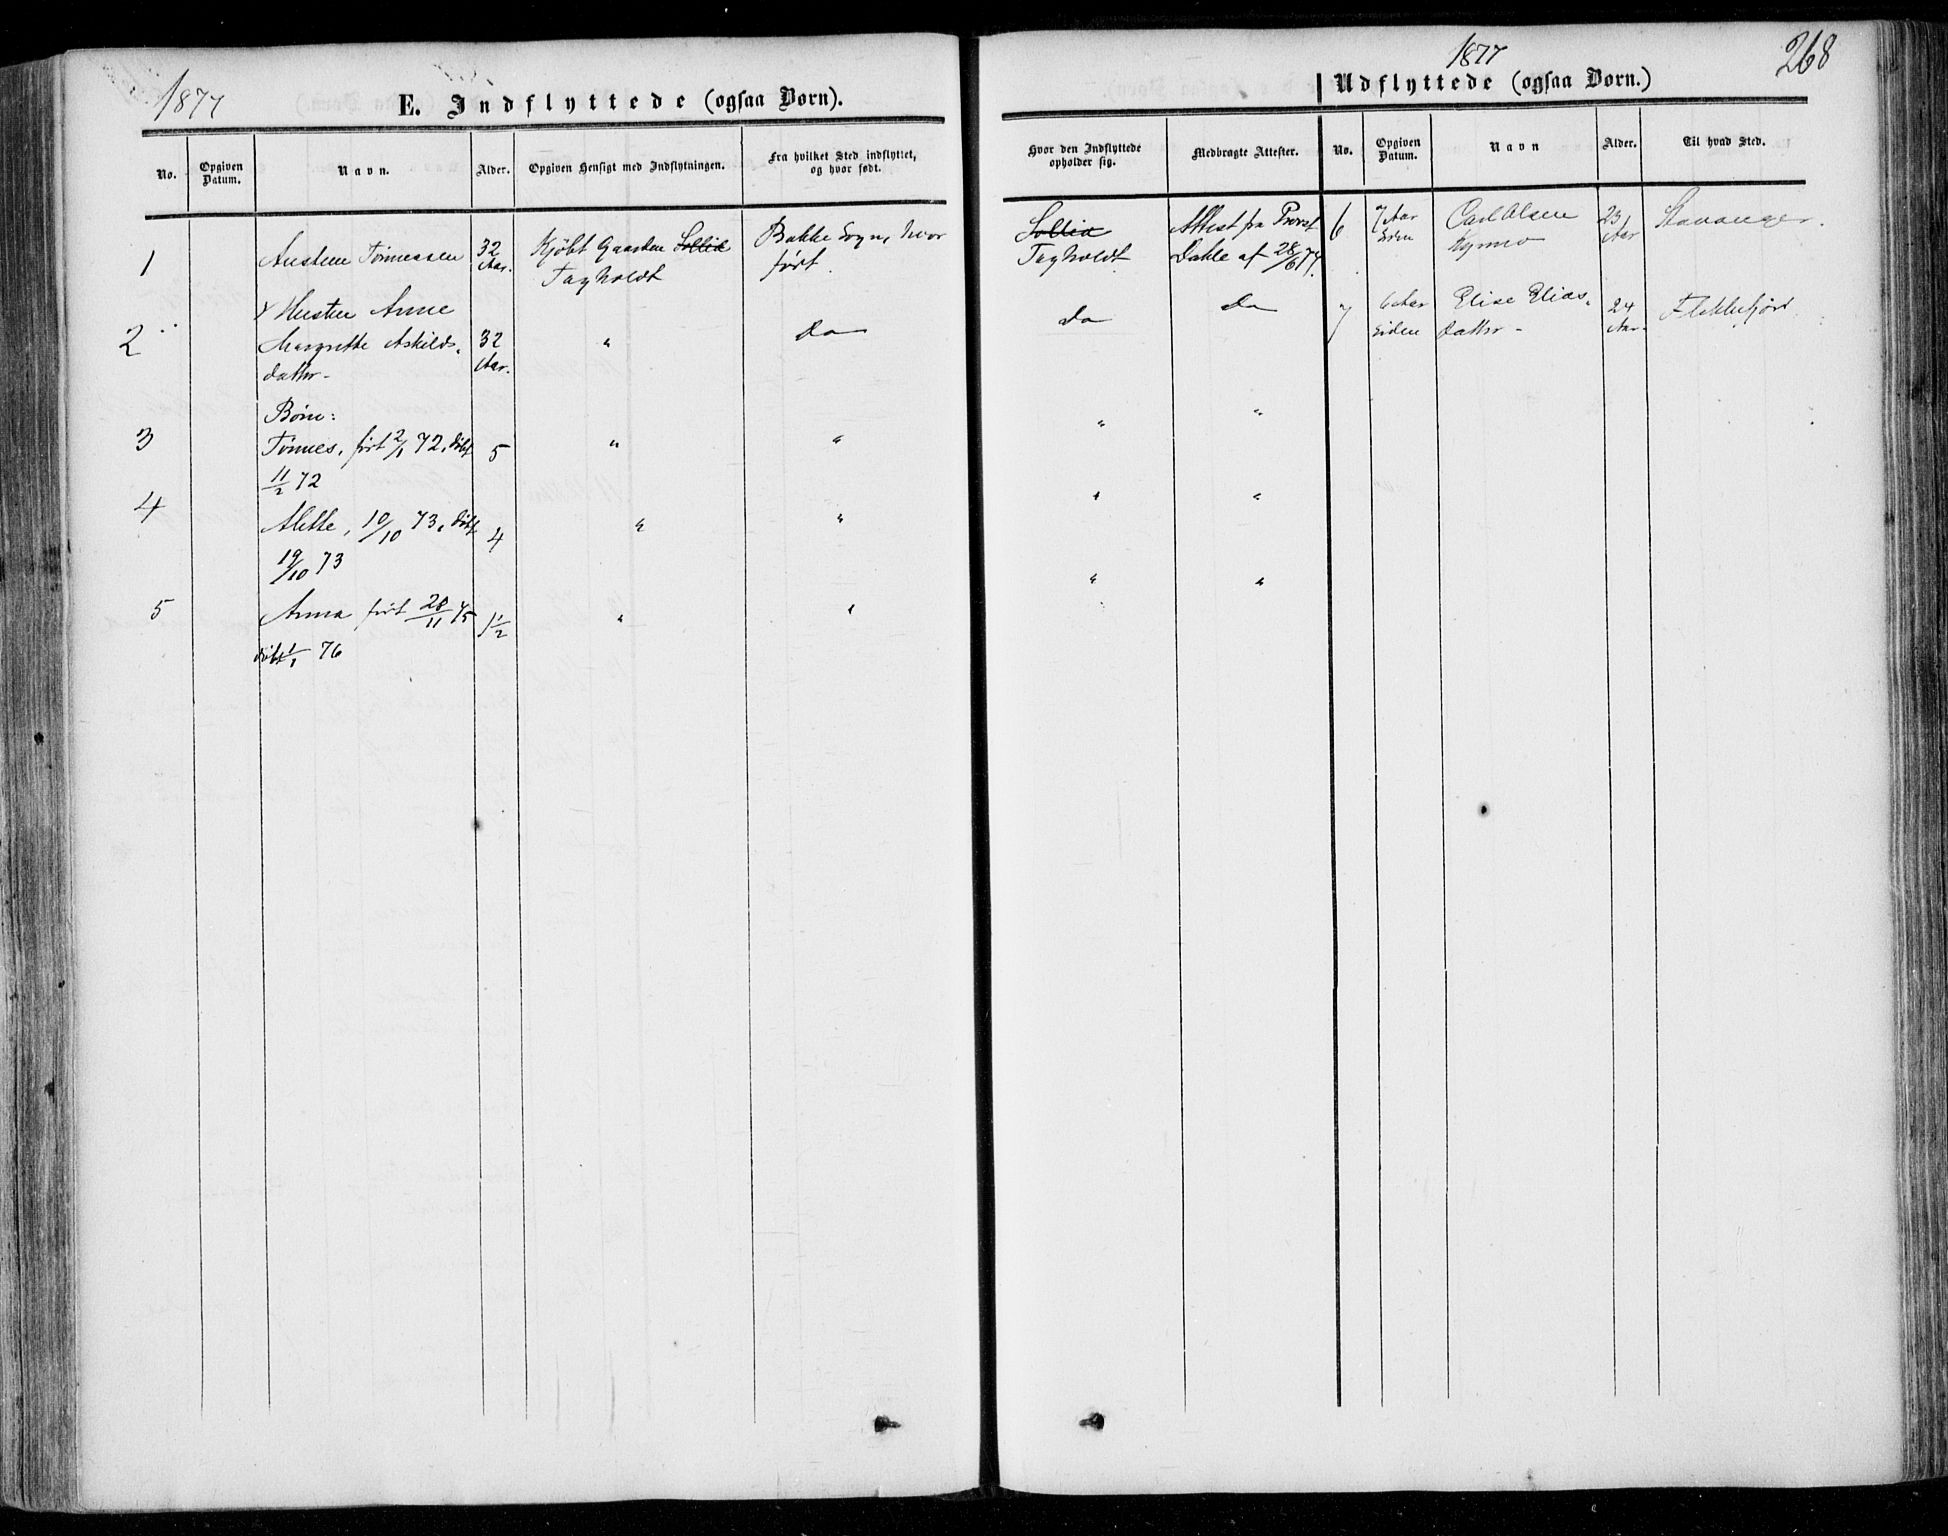 1877
E. Indflyttede (ogsaa Børn).
No.
Opgiven Datum.
Navn.
Alder.
Opgiven Hensigt med Indflytningen.
Fra hvilket Sted indflyttet, og hvor født.
1
Tønnessen
32 Aar.
Kjöbt Gaarden Sollid
Bakke Sogn, hvor
født.
2
& Hustru Anne
Margrethe Askilds-
datter
32 Aar.
"
Do
Børn:
3
Tønnes, født 2/1 72, döbt
11/2 72
5
"
"
4
Alette, 10/10 73, döbt
19/10 73
4
"
"
5
Anna født 28/11 75
döbt 1/1 76
1½
"
"
1877
268
Udflyttede (ogsaa Børn.)
Hvor den Indflyttede opholder sig.
Medbragte Attester.
No.
Opgiven Datum.
Navn
Alder.
Til hvad Sted.
Sollid
Attest fra Provst
Dahle af 28/6 77.
6
7 Aar
siden
Carl Olsen
23 Aar
Stavanger.
Do
Do
7
6 Aar
siden
Elise Elias-
datter
24 Aar
Flekkefjord.
"
"
"
"
"
"